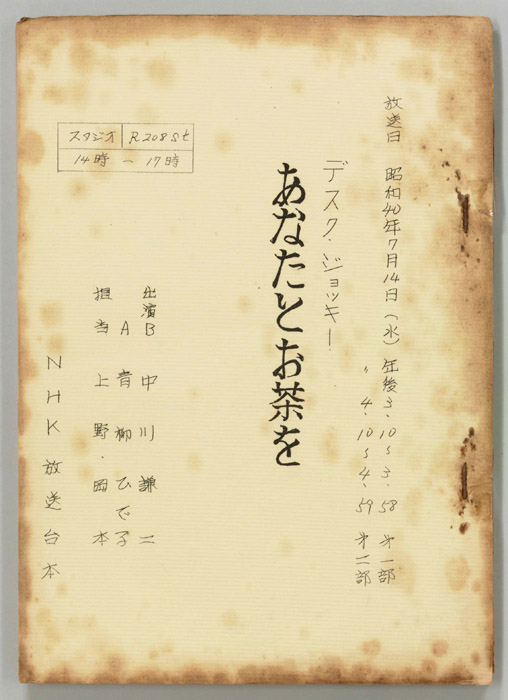 放送日 昭和40年7月14日(水) 午後3.10~3.58 第一部
〃 4.10~4.59 第二部
デスク・ジョッキー
あなたとお茶を
スタジオ R208St
14時-17時
出演B 中川謙二
A 青柳ひで子
担当 上野・岡本
NHK放送台本